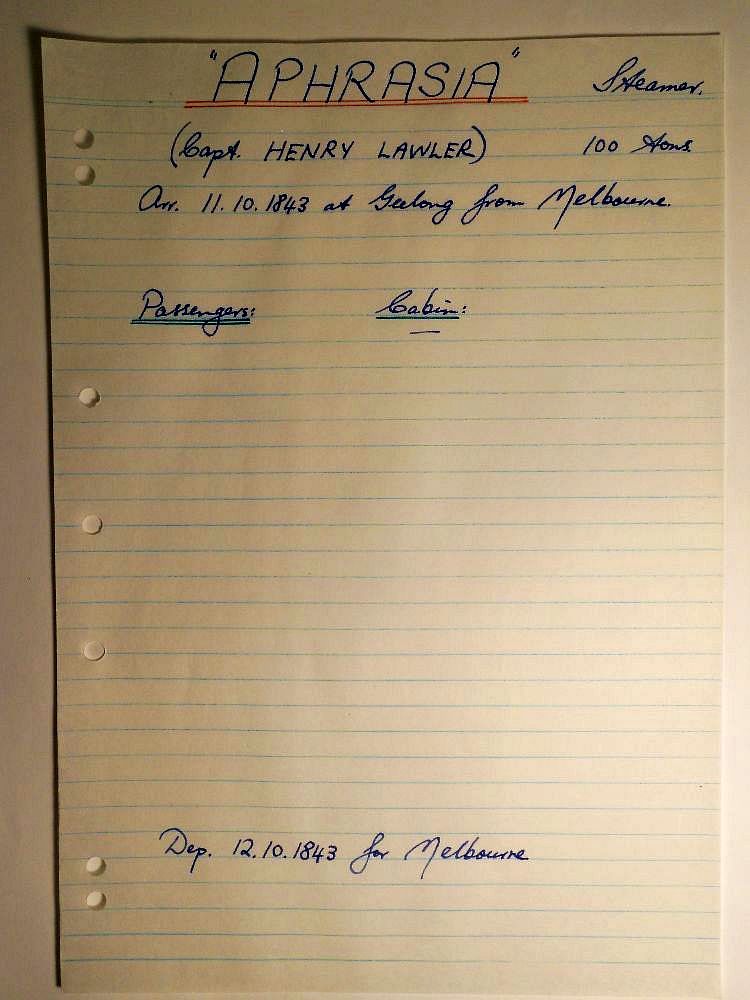 "APHRASIA" Steamer.
(Capt. HENRY LAWLER) 100 tons
Arr. 11.10.1843 at Geelong from Melbourne.
Passengers: Cabin:
—
Dep. 12.10.1843 for Melbourne